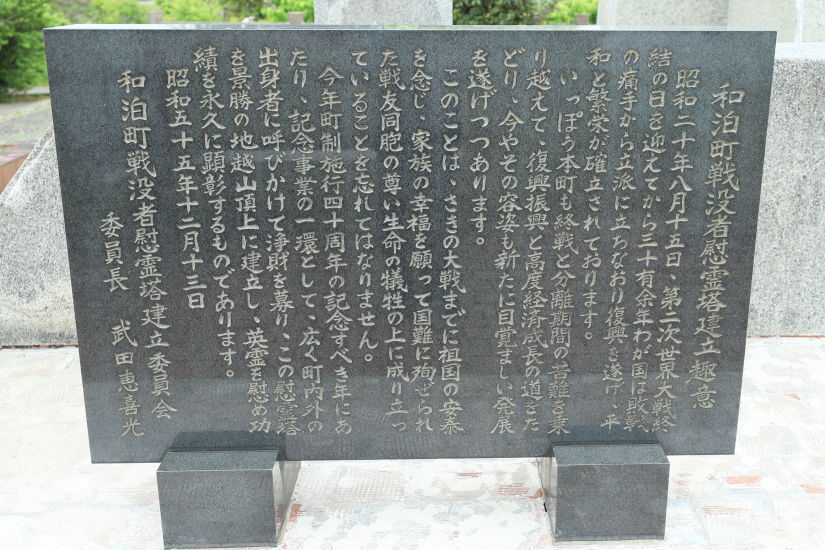 和泊町戦没者慰霊塔建立趣意
昭和二十年八月十五日、第二次世界大戦終
結の日を迎えてから三十有余年わが国は敗戦
の痛手から立派に立ちなおり復興を遂げ、平
和と繁栄が確立されております。
いっぽう本町も終戦と分離期間の苦難を乗
り越えて、復興振興と高度経済成長の道をた
どり、今やその容姿も新たに目覚ましい発展
を遂げつつあります。
このことは、さきの大戦までに祖国の安泰
を念じ、家族の幸福を願って国難に殉ぜられ
た戦友同胞の尊い生命の犠牲の上に成り立っ
ていることを忘れてはなりません。
今年町制施行四十周年の記念すべき年にあ
たり、記念事業の一環として、広く町内外の
出身者に呼びかけて浄財を募り、この慰霊塔
を景勝の地越山頂上に建立し、英霊を慰め功
績を永久に顕彰するものであります。
昭和五十五年十二月十三日
和泊町戦没者慰霊塔建立委員会
委員長　武田恵喜光